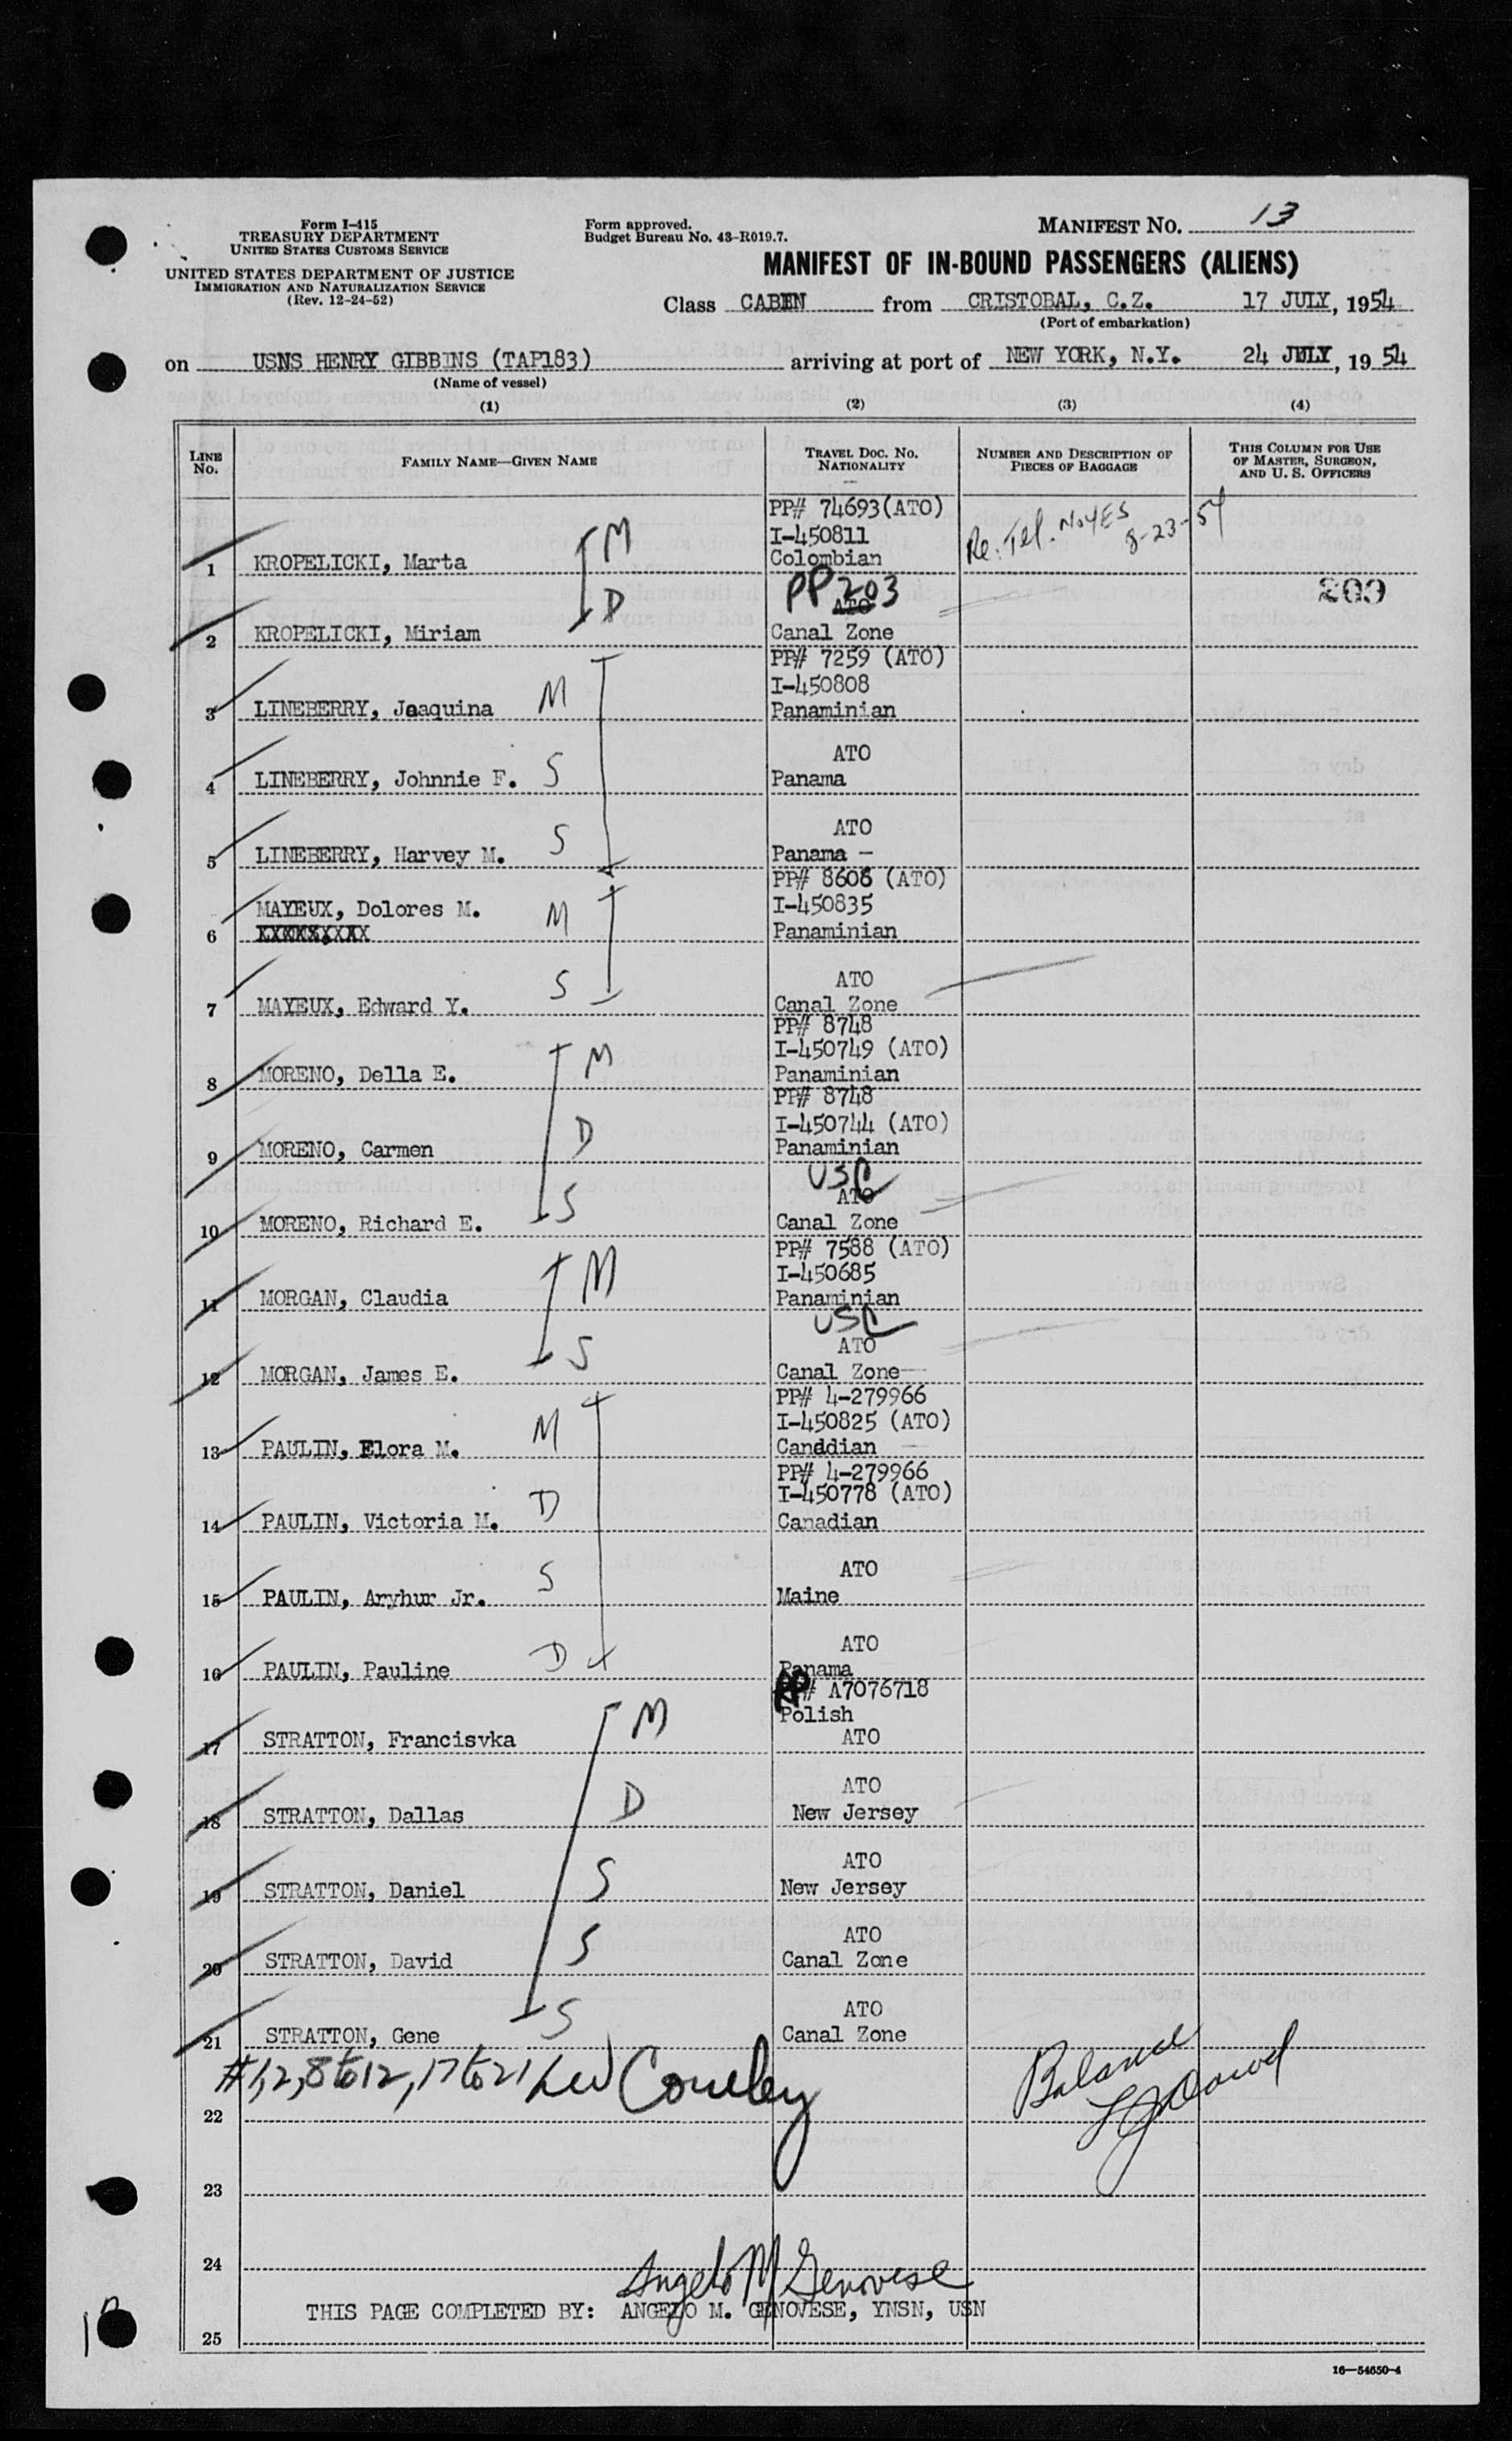 Form I-415
TREASURY DEPARTMENT
UNITED STATES CUSTOMS SERVICE
UNITED STATES DEPARTMENT OF JUSTICE
IMMIGRATION AND NATURALIZATION SERVICE
(Rev. 12-24-52)
Form approved.
Budget Bureau No. 43-R019.7.
MANIFEST NO. 13
MANIFEST OF IN-BOUND PASSENGERS (ALIENS)
Class CABIN from CRISTOBAL, C.Z. 17 JULY, 1954
(Port of embarkation)
on USNS HENRY GIBBINS (TAP183) arriving at port of NEW YORK, N.Y. 24 JULY, 1954
(Name of vessel)
(1) (2) (3) (4)
LINE No.
FAMILY NAME—GIVEN NAME
TRAVEL DOC. NO. NATIONALITY
NUMBER AND DESCRIPTION OF PIECES OF BAGGAGE
THIS COLUMN FOR USE OF MASTER, SURGEON, AND U. S. OFFICERS
PP# 74693(ATO)
I-450811
1 KROPELICKI, Marta M Colombian
Re: Tel. NOYES 8-23-54
PP 203
ATO
209
2 KROPELICKI, Miriam D Canal Zone
PP# 7259 (ATO)
I-450808
3 LINEBERRY, Joaquina M Panaminian
ATO
4 LINEBERRY, Johnnie F. S Panama
ATO
5 LINEBERRY, Harvey M. S Panama -
PP# 8608 (ATO)
MAYEUX, Dolores M. M I-450835
6 Panaminian
ATO
7 MAYEUX, Edward Y. S Canal Zone
PP# 8748
I-450749 (ATO)
8 MORENO, Della E. M Panaminian
PP# 8748
I-450744 (ATO)
9 MORENO, Carmen D Panaminian
USC
ATO
10 MORENO, Richard E. S Canal Zone
PP# 7588 (ATO)
I-450685
11 MORGAN, Claudia M Panaminian
USC
ATO
12 MORGAN, James E. S Canal Zone
PP# 4-279966
I-450825 (ATO)
13 PAULIN, Elora M. M Canadian
PP# 4-279966
I-450778 (ATO)
14 PAULIN, Victoria M. D Canadian
ATO
15 PAULIN, Aryhur Jr. S Maine
ATO
16 PAULIN, Pauline D Panama
PP# A7076718
Polish
17 STRATTON, Francisvka M ATO
ATO
18 STRATTON, Dallas D New Jersey
ATO
19 STRATTON, Daniel S New Jersey
ATO
20 STRATTON, David S Canal Zone
ATO
21 STRATTON, Gene S Canal Zone
#1,2,8 to 12, 17 to 21
Balance
22
23
24
Angelo M Genovese
THIS PAGE COMPLETED BY: ANGELO M. GENOVESE, YNSN, USN
25
16—54650-4